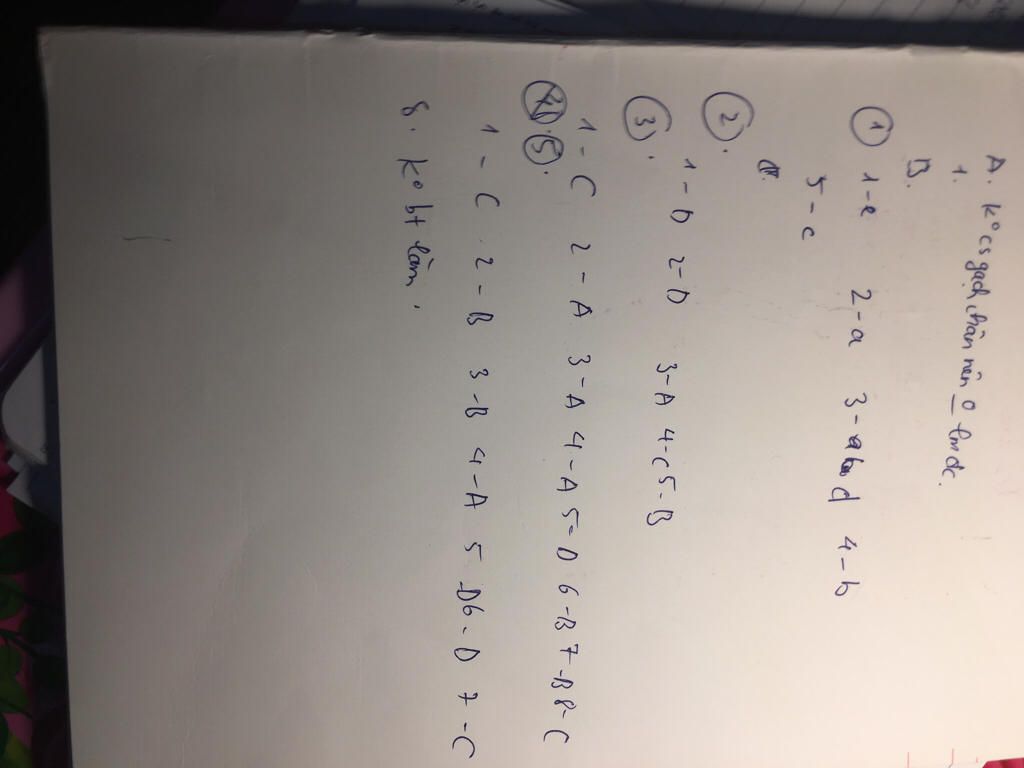 A. k° cs gạch chân nên 0 lm đc.
1.
B.
① 1-e 2-a 3-d 4-b
5-c
②.
1-D 2-D 3-A 4-C 5-B
③.
1-C 2-A 3-A 4-A 5-D 6-B 7-B 8-C
⑤.
1-C 2-B 3-B 4-A 5-D 6-D 7-C
8. k° bt làm.